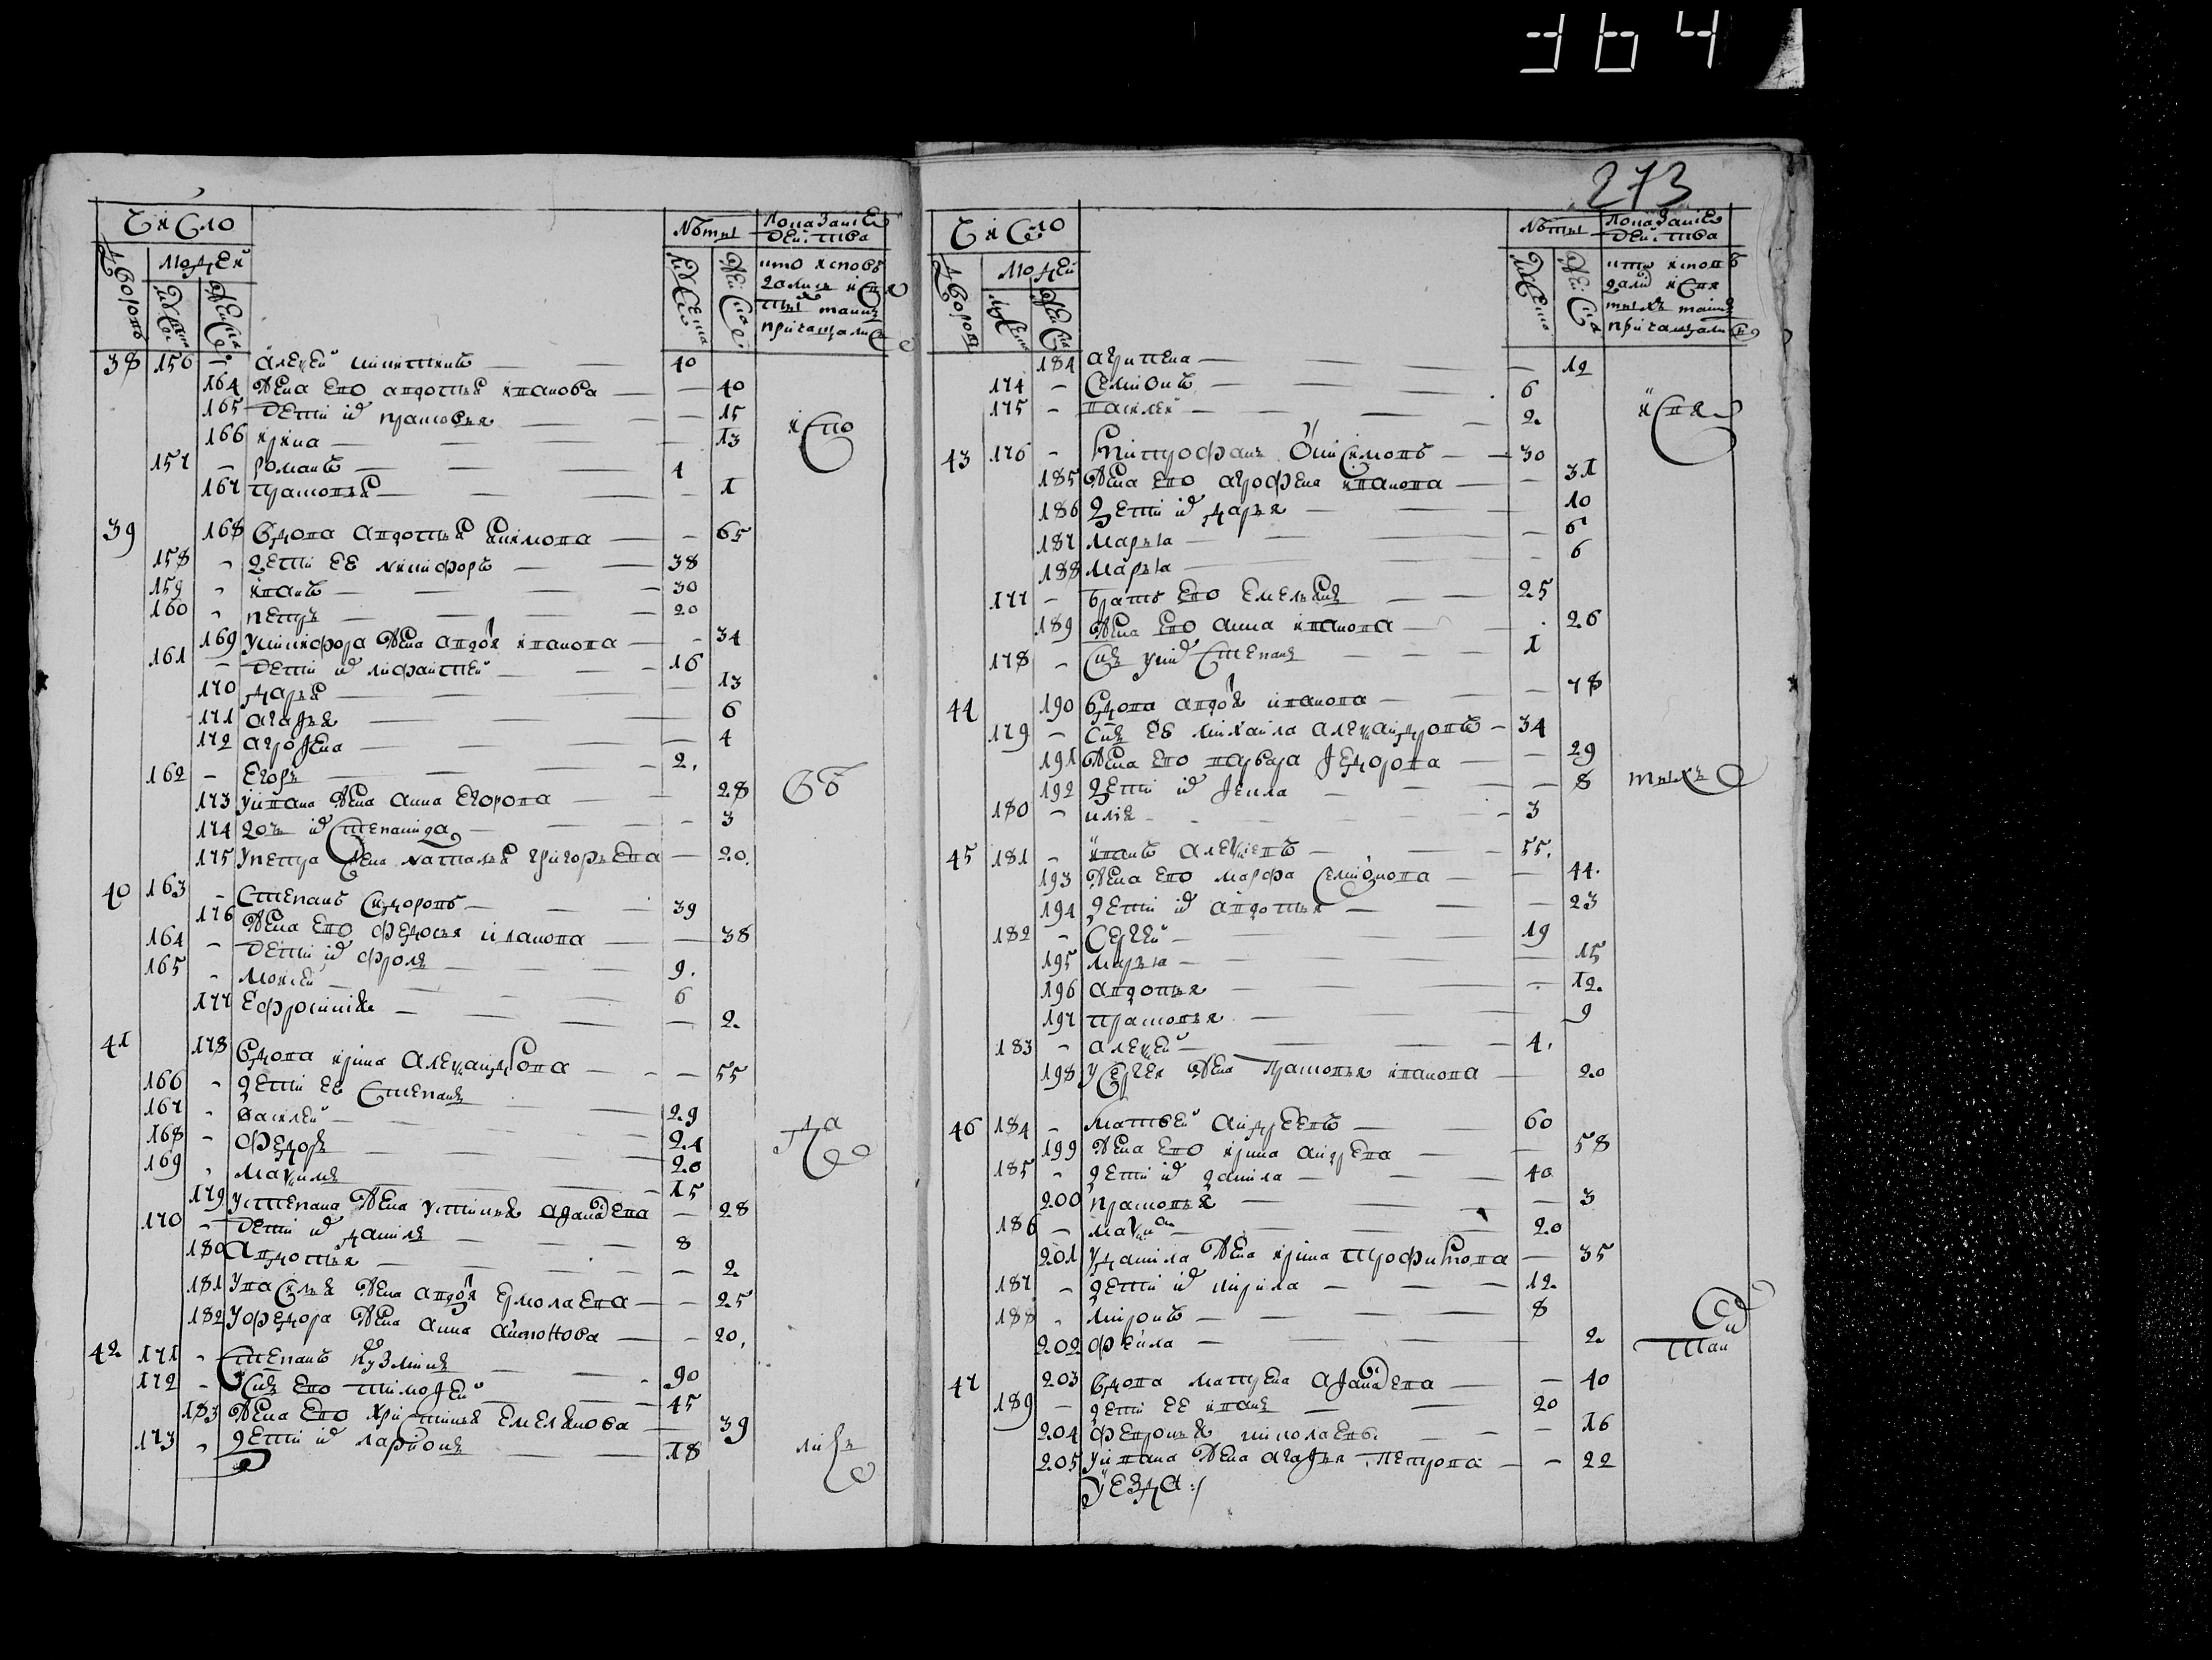 364
273
Число
Дворовъ
Людей
Мужеска
Женска
Лѣты
Мужеска
Женска
Показаніе
дѣйства
кто исповѣ
дались и свя
тыхъ таинъ
причащались
38 156 - Алеѯей Никитинъ — 40
164 Жена его авдотья иванова — 40
165 дети их прасковья — 15
166 ирина — 13
испо
157 - романъ — 4
167 прасковья — 1
39 168 вдова авдотья — 65
158 - дети ее никифоръ — 38
159 - иванъ — 30
160 - петръ — 20
169 уникифора жена авдотя иванова — 34
161 - дети их — 16
170 дарья — 13
171 агафья — 6
172 агрофена — 4
162 - егоръ — 2.
вѣ
173 уивана жена анна егорова — 28
174 дочь их степанида — 3
175 упетра жена наталья григорьева — 20.
40 163 - степанъ сидоровъ — 39
176 жена его федосья иванова — 38
164 - дети их фролъ — 9.
165 - мосей — 6
177 Ефросинія — 2.
41 178 вдова ирина алеѯандрова — 55
166 - дети ее степанъ — 29
167 - василей — 24
да
168 - федоръ — 20
169 - маѯимъ — 15
179 устепана жена устинья афанасева — 28
170 - дети их данила — 8
180 авдотья — 2.
181 увасилья жена авдотя ермолаева — 25
182 уфедора жена анна — 20,
42 171 - степанъ кузминъ — 90
172 - снъ его тимофей — 45
183 жена его христинья емельянова — 39
173 - дети их ларионъ — 18
лись
Число
Дворовъ
Людей
Мужеска
Женска
Лѣты
Мужеска
Женска
Показаніе
дѣйства
кто исповѣ
дали и свя
тыхъ таинъ
причащались
184 агрипена — 12
174 - семионъ — 6
175 - василей — 2.
и свя
43 176 - митрофанъ — 30
185 жена его агрофена иванова — 31
186 дети их дарья — 10
187 марья — 6
188 марья — 6
177 - братъ его емельянъ — 25
189 жена его анна иванова — 26
178 - снъ их степанъ — 1
44 190 вдова авдотя иванова — 78
179 - снъ ее михаила алеѯандровъ — 34
191 жена его варвара федорова — 29
192 дети их фекла — 8
тыхъ
180 - илья — 3
45 181 - иванъ алеѯѣевъ — 55.
193 жена его марфа семионова — 44.
194 дети их авдотья — 23
182 - сергей — 19
195 марья — 15
196 авдотья — 12.
197 прасковья — 9
183 - алеѯей — 4.
198 усергея жена прасковья иванова — 20
46 184 - матвей андреевъ — 60
199 жена его ирина андреева — 58
185 - дети их данила — 40
200 прасковья — 3
186 - маѯим — 20
201 уданила жена ирина трофимова — 35
187 - дети их кирила — 12.
188 - миронъ — 8
202 фекла — 2.
таи
47 203 вдова матрена афанасева — 40
189 - дети ее иванъ — 20
204 февронья николаевъ. — 16
205 уивана жена агафья петрова — 22
уезда :/